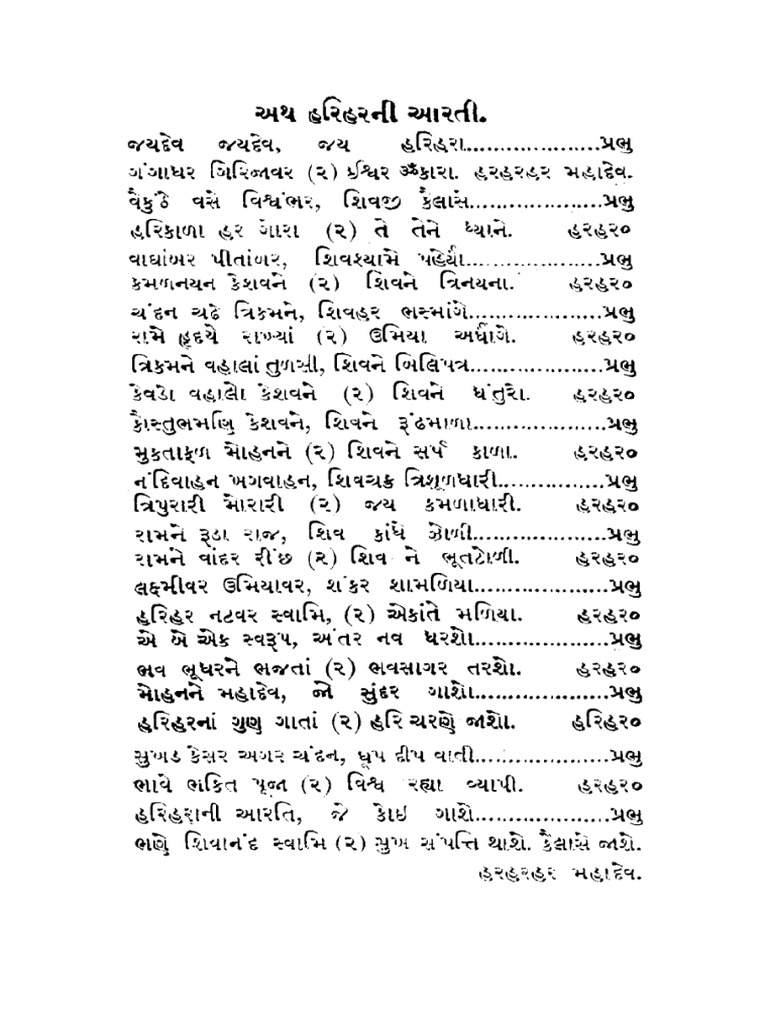 અથ હરિહરની આરતી.
જયદેવ જયદેવ, જય હરિહરા....................પ્રભુ
ગંગાધર ગિરિજાવર (૨) ઈશ્વર ૐકારા. હરહરહર મહાદેવ.
વૈકુંઠે વસે વિશ્વંભર, શિવજી કૈલાસ....................પ્રભુ
હરિકાળા હર ગોરા (૨) તે તેને ધ્યાને. હરહર૦
વાઘાંબર પીતાંબર, શિવશ્યામે પહેર્યા....................પ્રભુ
કમળનયન કેશવને (૨) શિવને ત્રિનયના. હરહર૦
ચંદન ચઢે ત્રિકમને, શિવહર ભસ્માંગે....................પ્રભુ
રામે હૃદયે રાખ્યાં (૨) ઉમિયા અર્ધાંગે. હરહર૦
ત્રિકમને વહાલાં તુળસી, શિવને બિલિપત્ર....................પ્રભુ
કેવડો વહાલો કેશવને (૨) શિવને ધંતુરો. હરહર૦
કૌસ્તુભમણિ કેશવને, શિવને રૂંઢમાળા....................પ્રભુ
મુકતાફળ મોહનને (૨) શિવને સર્પ કાળા. હરહર૦
નંદિવાહન ખગવાહન, શિવચક્ર ત્રિશૂળધારી................પ્રભુ
ત્રિપુરારી મોરારી (૨) જય કમળાધારી. હરહર૦
રામને રૂડા રાજ, શિવ કાંધે ઝોળી....................પ્રભુ
રામને વાંદર રીંછ (૨) શિવ ને ભૂતટોળી. હરહર૦
લક્ષ્મીવર ઉમિયાવર, શંકર શામળિયા....................પ્રભુ
હરિહર નટવર સ્વામિ, (૨) એકાંતે મળિયા. હરહર૦
એ બે એક સ્વરૂપ, અંતર નવ ધરશો....................પ્રભુ
ભવ ભૂધરને ભજતાં (૨) ભવસાગર તરશો. હરહર૦
મોહનને મહાદેવ, જો સુંદર ગાશો....................પ્રભુ
હરિહરનાં ગુણ ગાતાં (૨) હરિ ચરણે જાશો. હરિહર૦
સુખડ કેસર અગર ચંદન, ધૂપ દીપ વાતી....................પ્રભુ
ભાવે ભકિત પૂજા (૨) વિશ્વ રહ્યા વ્યાપી. હરહર૦
હરિહરાની આરતિ, જે કોઇ ગાશે....................પ્રભુ
ભણે શિવાનંદ સ્વામિ (૨) સુખ સંપત્તિ થાશે. કૈલાસે જાશે.
હરહરહર મહાદેવ.